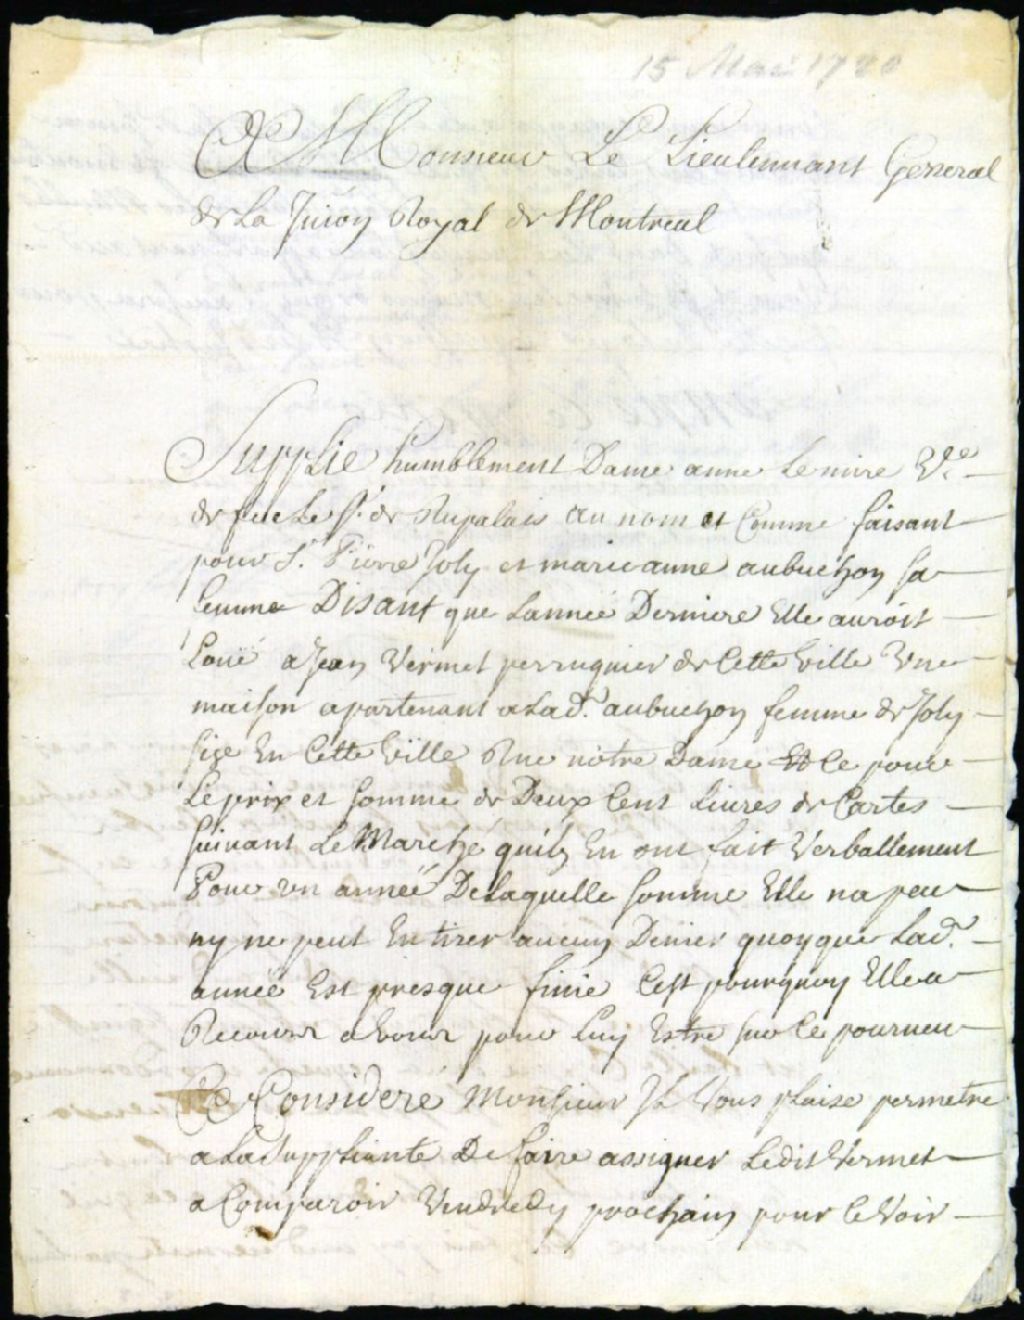 15 Mai 1720
A Monsieur Le Lieutennant General
de La Juion Royal de Montreal
Supplie humblement Dame anne Le mire Ve
de feu Le Sr. de Rupalais au nom et Comme faisant
pour Sr. Pierre Joly et marie anne aubuchon sa
femme Disant que Lannéé Derniere Elle auroit
Loué a Jean Vermet perruquier de Cette ville Une
maison apartenant a Lad. aubuchon femme de Joly
size En Cette Ville Rue nôtre Dame Et Ce pour
Le prix et somme de Deux Cent Livres de Cartes
suivant Le Marché quils En ont fait Verballement
Pour un année De Laquelle somme Elle na peu
ny ne peut En tirer aucun Denier quoyque Lad.
année Est presque finie Cest pourquoy Elle a
Recours a vous pour Luy Estre sur Ce pourveu
Ce Consideré Monsieur Il Vous plaise permetre
a La Suppliante De faire assigner Ledit Vermet
a Comparoir Vendredy prochain pour Ce Voir